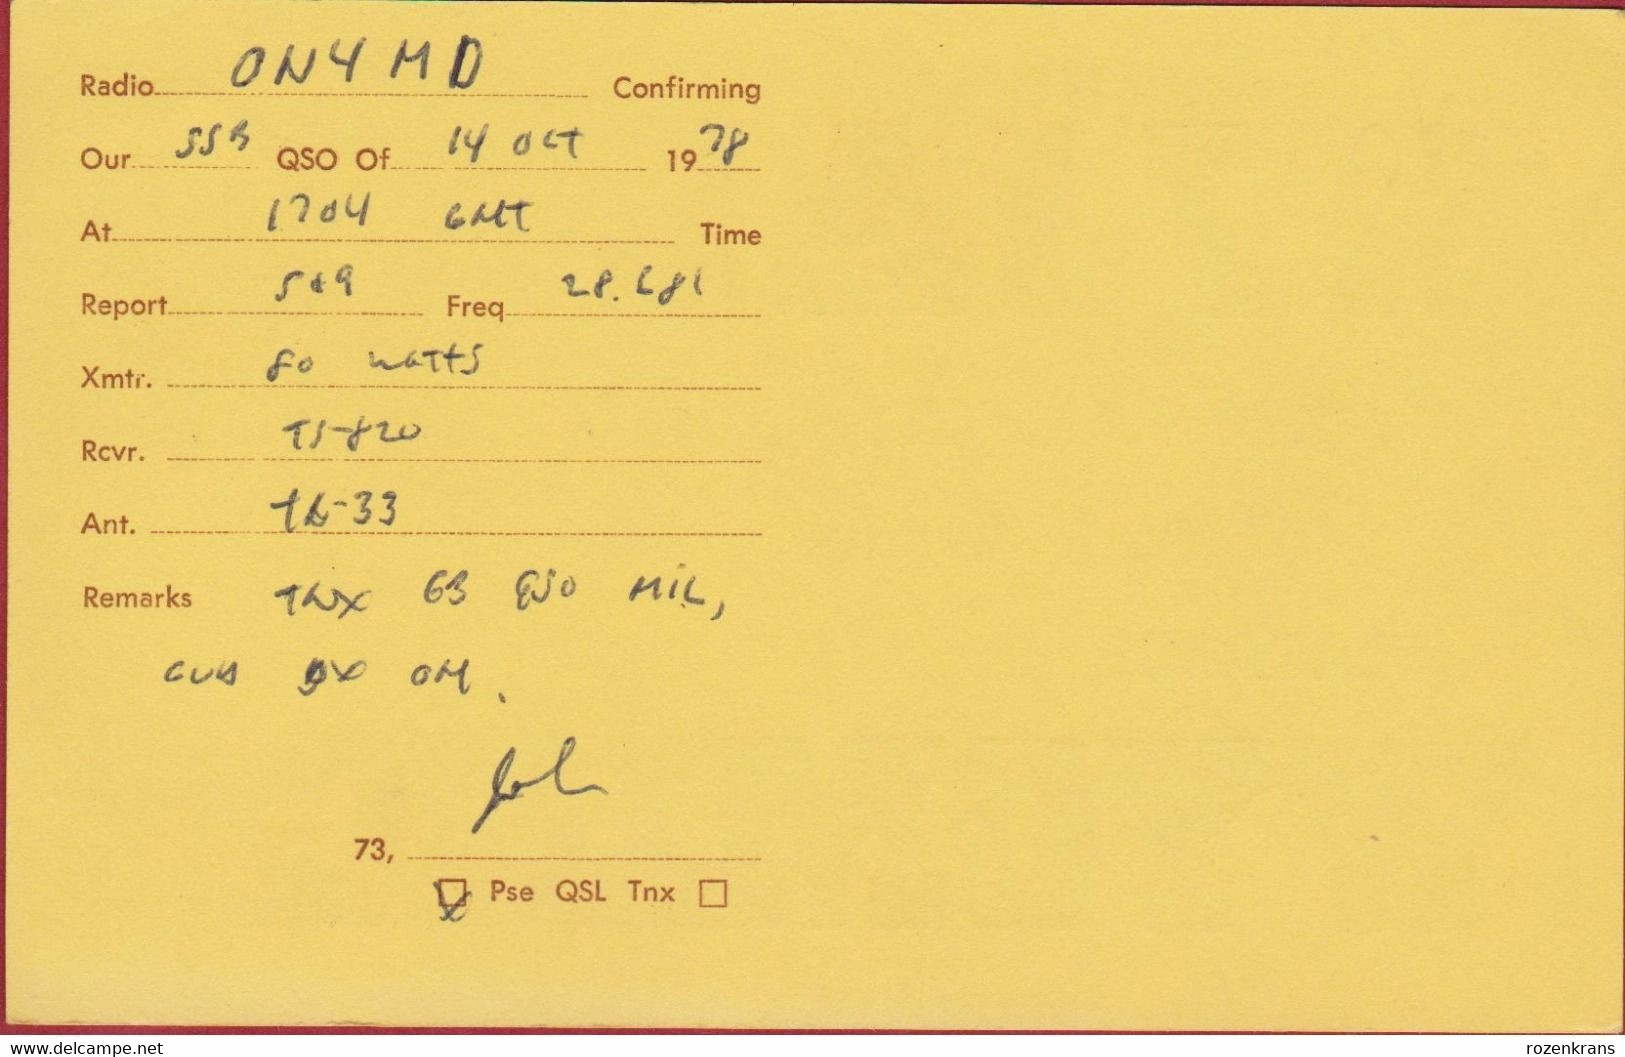 Radio ON4MD Confirming
Our SSB QSO Of 14 OCT 1978
At 1704 GMT Time
Report 5+9 Freq 28.681
Xmtr. 80 watts
Rcvr. TS-820
Ant. -33
Remarks TNX QSO MIL,
DX OM.
John
73,
Pse QSL Tnx
www.delcampe.net
rozenkrans